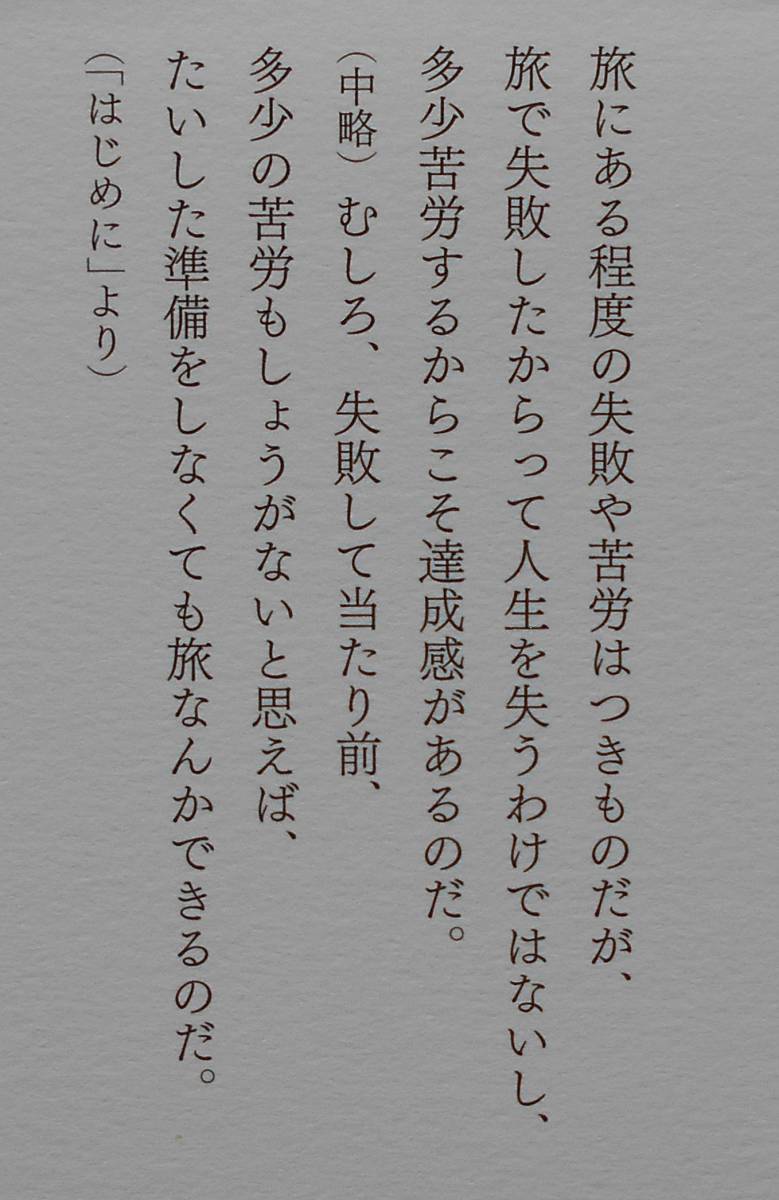 旅にある程度の失敗や苦労はつきものだが、
旅で失敗したからって人生を失うわけではないし、
多少苦労するからこそ達成感があるのだ。
（中略）むしろ、失敗して当たり前、
多少の苦労もしょうがないと思えば、
たいした準備をしなくても旅なんかできるのだ。
（「はじめに」より）